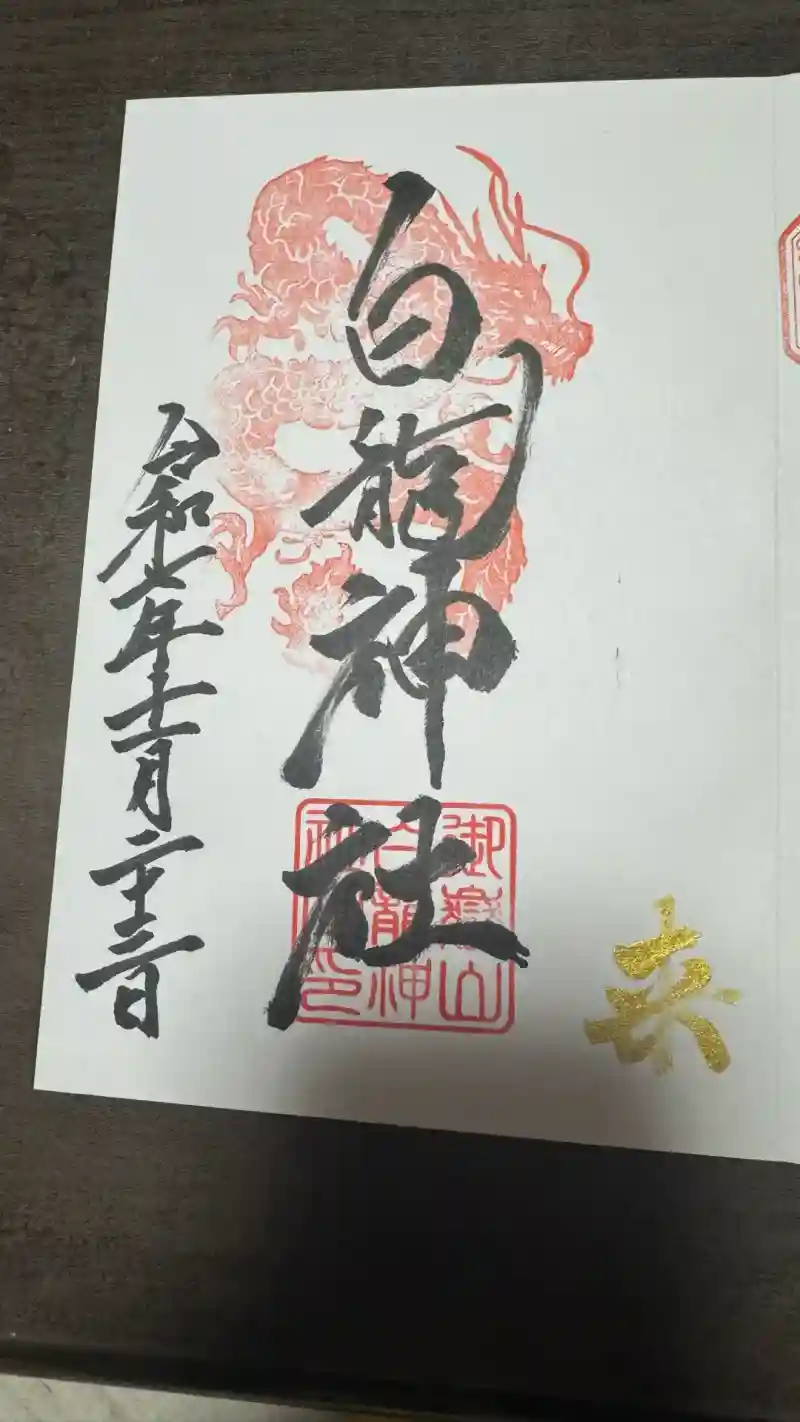 白龍神社
御嶽山
白龍神
令和七年十一月二十三日